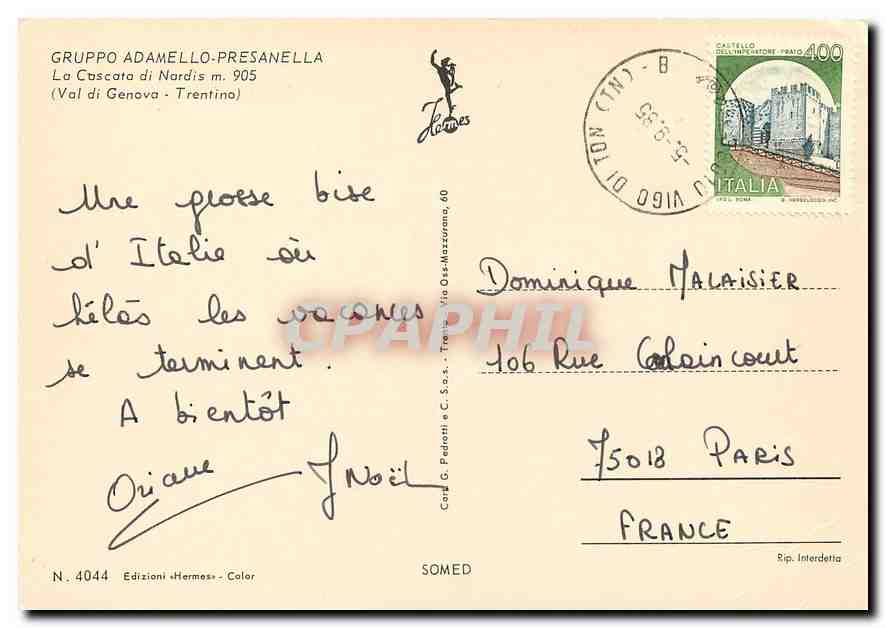 GRUPPO ADAMELLO-PRESANELLA
La Cascata di Nardis m. 905
(Val di Genova - Trentino)
Hermes
CASTELLO
DELL'IMPERATORE - PRATO 400
ITALIA
VIGO DI TON (TN) - B
5-9-85
Une grosse bise
d'Italie où
hélàs les vacances
se terminent.
A bientôt
Oriane JNoël
Cart. G. Pedrotti e C. S.a.s. - Trento, Via Oss-Mazzurana, 60
Dominique MALAISIER
106 Rue Caulaincourt
75018 PARIS
FRANCE
Rip. Interdetta
N. 4044 Edizioni «Hermes» - Color
SOMED
CPAPHIL